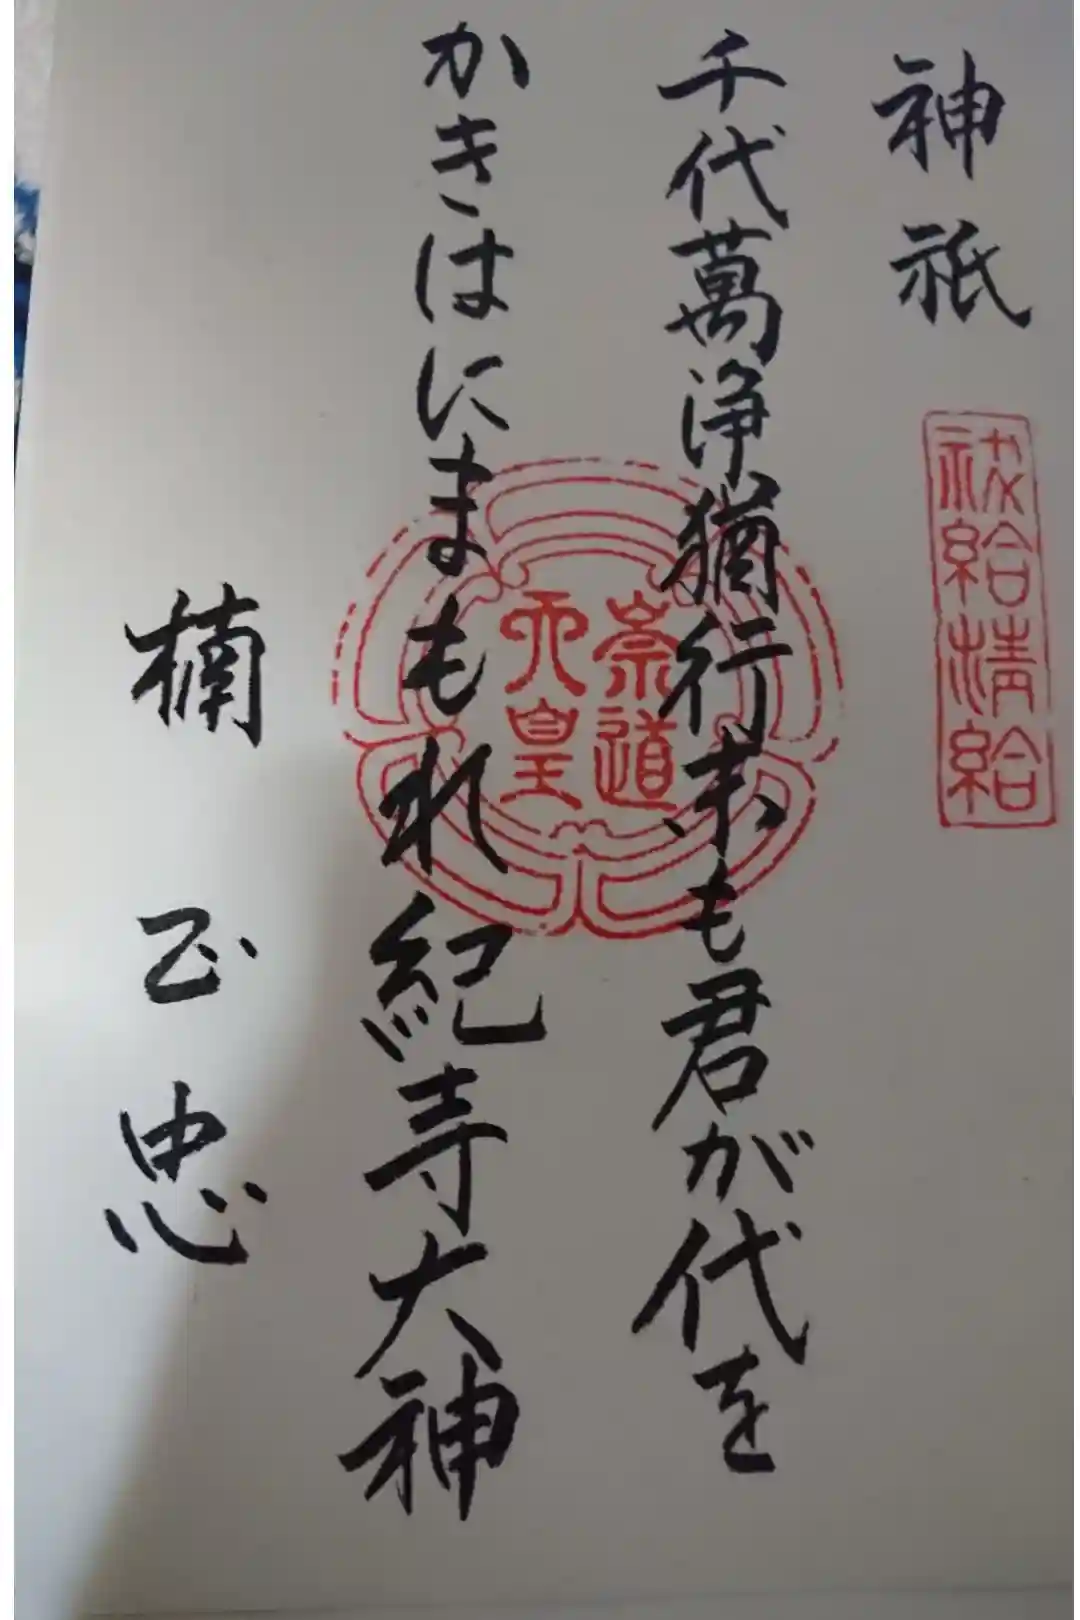 神祇
祓給清給
千代萬浄猶行末も君が代を
崇道
天皇
かきはにまもれ紀寺大神
楠正忠